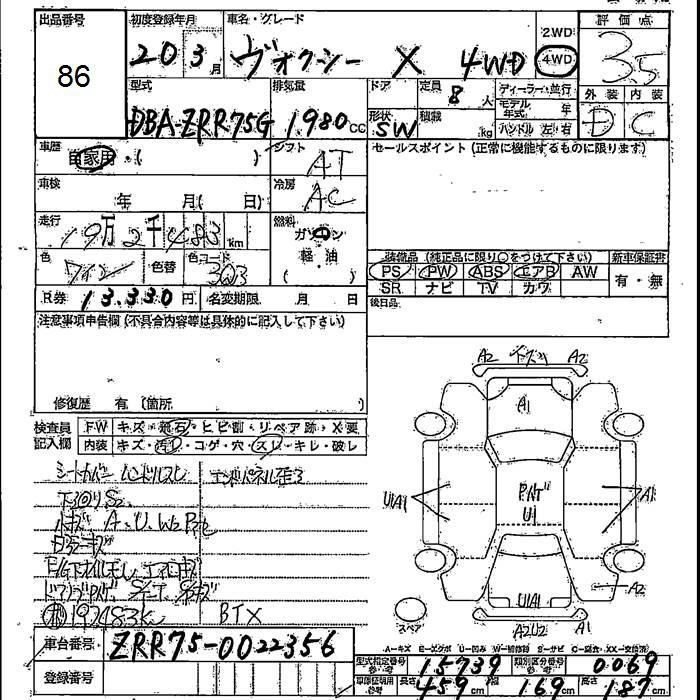 出品番号
86
初度登録年月
20 3月
車名・グレード
ヴォクシー X 4WD
2WD
4WD
評価点
3.5
外装 内装
D C
型式
DBA-ZRR75G
排気量
1980cc
ドア
定員
8人
形状
SW
積載
kg
ディーラー・並行
モデル年式 年
ハンドル 左・右
車歴
自家用・( )
シフト
AT
車検
年 月( 日)
冷房
AC
走行
19万2千483km
燃料
ガソリン
軽・油
( )
色
ワイン
色替
色コード
3Q3
R券 13.330円
名変期限 月 日
セールスポイント (正常に機能するものに限ります)
装備品 (純正品に限り○をつけて下さい)
新車保証書
PS PW ABS エアB AW
SR ナビ TV カワ
有・無
後日品
注意事項申告欄 (不具合内容等は具体的に記入して下さい)
修復歴 有 〔箇所
検査員記入欄
FW キズ・飛石・ヒビ割・リペア跡・X要
内装 キズ・汚れ・コゲ・穴・スレ・キレ・破レ
シートカバー ハンドルスレ
エンドパネル歪ミ
下回りS2
小キズ A.U.W2
ガラスキズ
192483km
BTX
A2 下スリ A2
A1
UIA1
PんザU1
A1
A2
UIA1
スペア
A2U2 A1
車台番号 ZRR75-0022356
登録番号
A-キズ E-エクボ U-凹み W-補修跡 S-サビ C-腐食・XX-交換済
型式指定番号 参考 15739
類別区分番号 参考 0069
車庫証明用 参考 長さ 459cm 幅 169cm 高さ 187cm